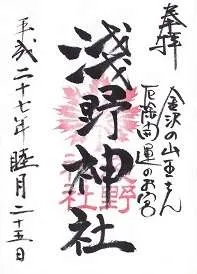 奉拝
金沢の山王さん
厄除開運のお宮
浅野神社
平成二十七年睦月二十五日